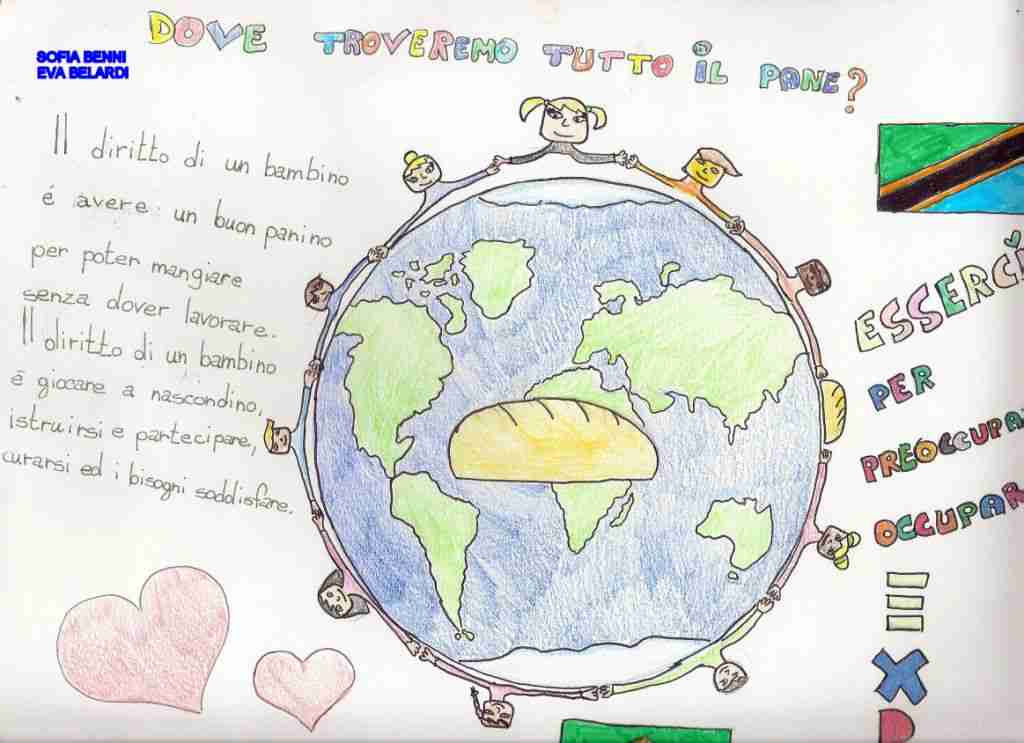 DOVE TROVEREMO TUTTO IL PANE?
SOFIA BENNI
EVA BELARDI
Il diritto di un bambino
é avere un buon panino
per poter mangiare
senza dover lavorare.
Il diritto di un bambino
é giocare a nascondino,
istruirsi e partecipare,
curarsi ed i bisogni soddisfare.
ESSERCI
PER
PREOCCUPA
OCCUPAR
X